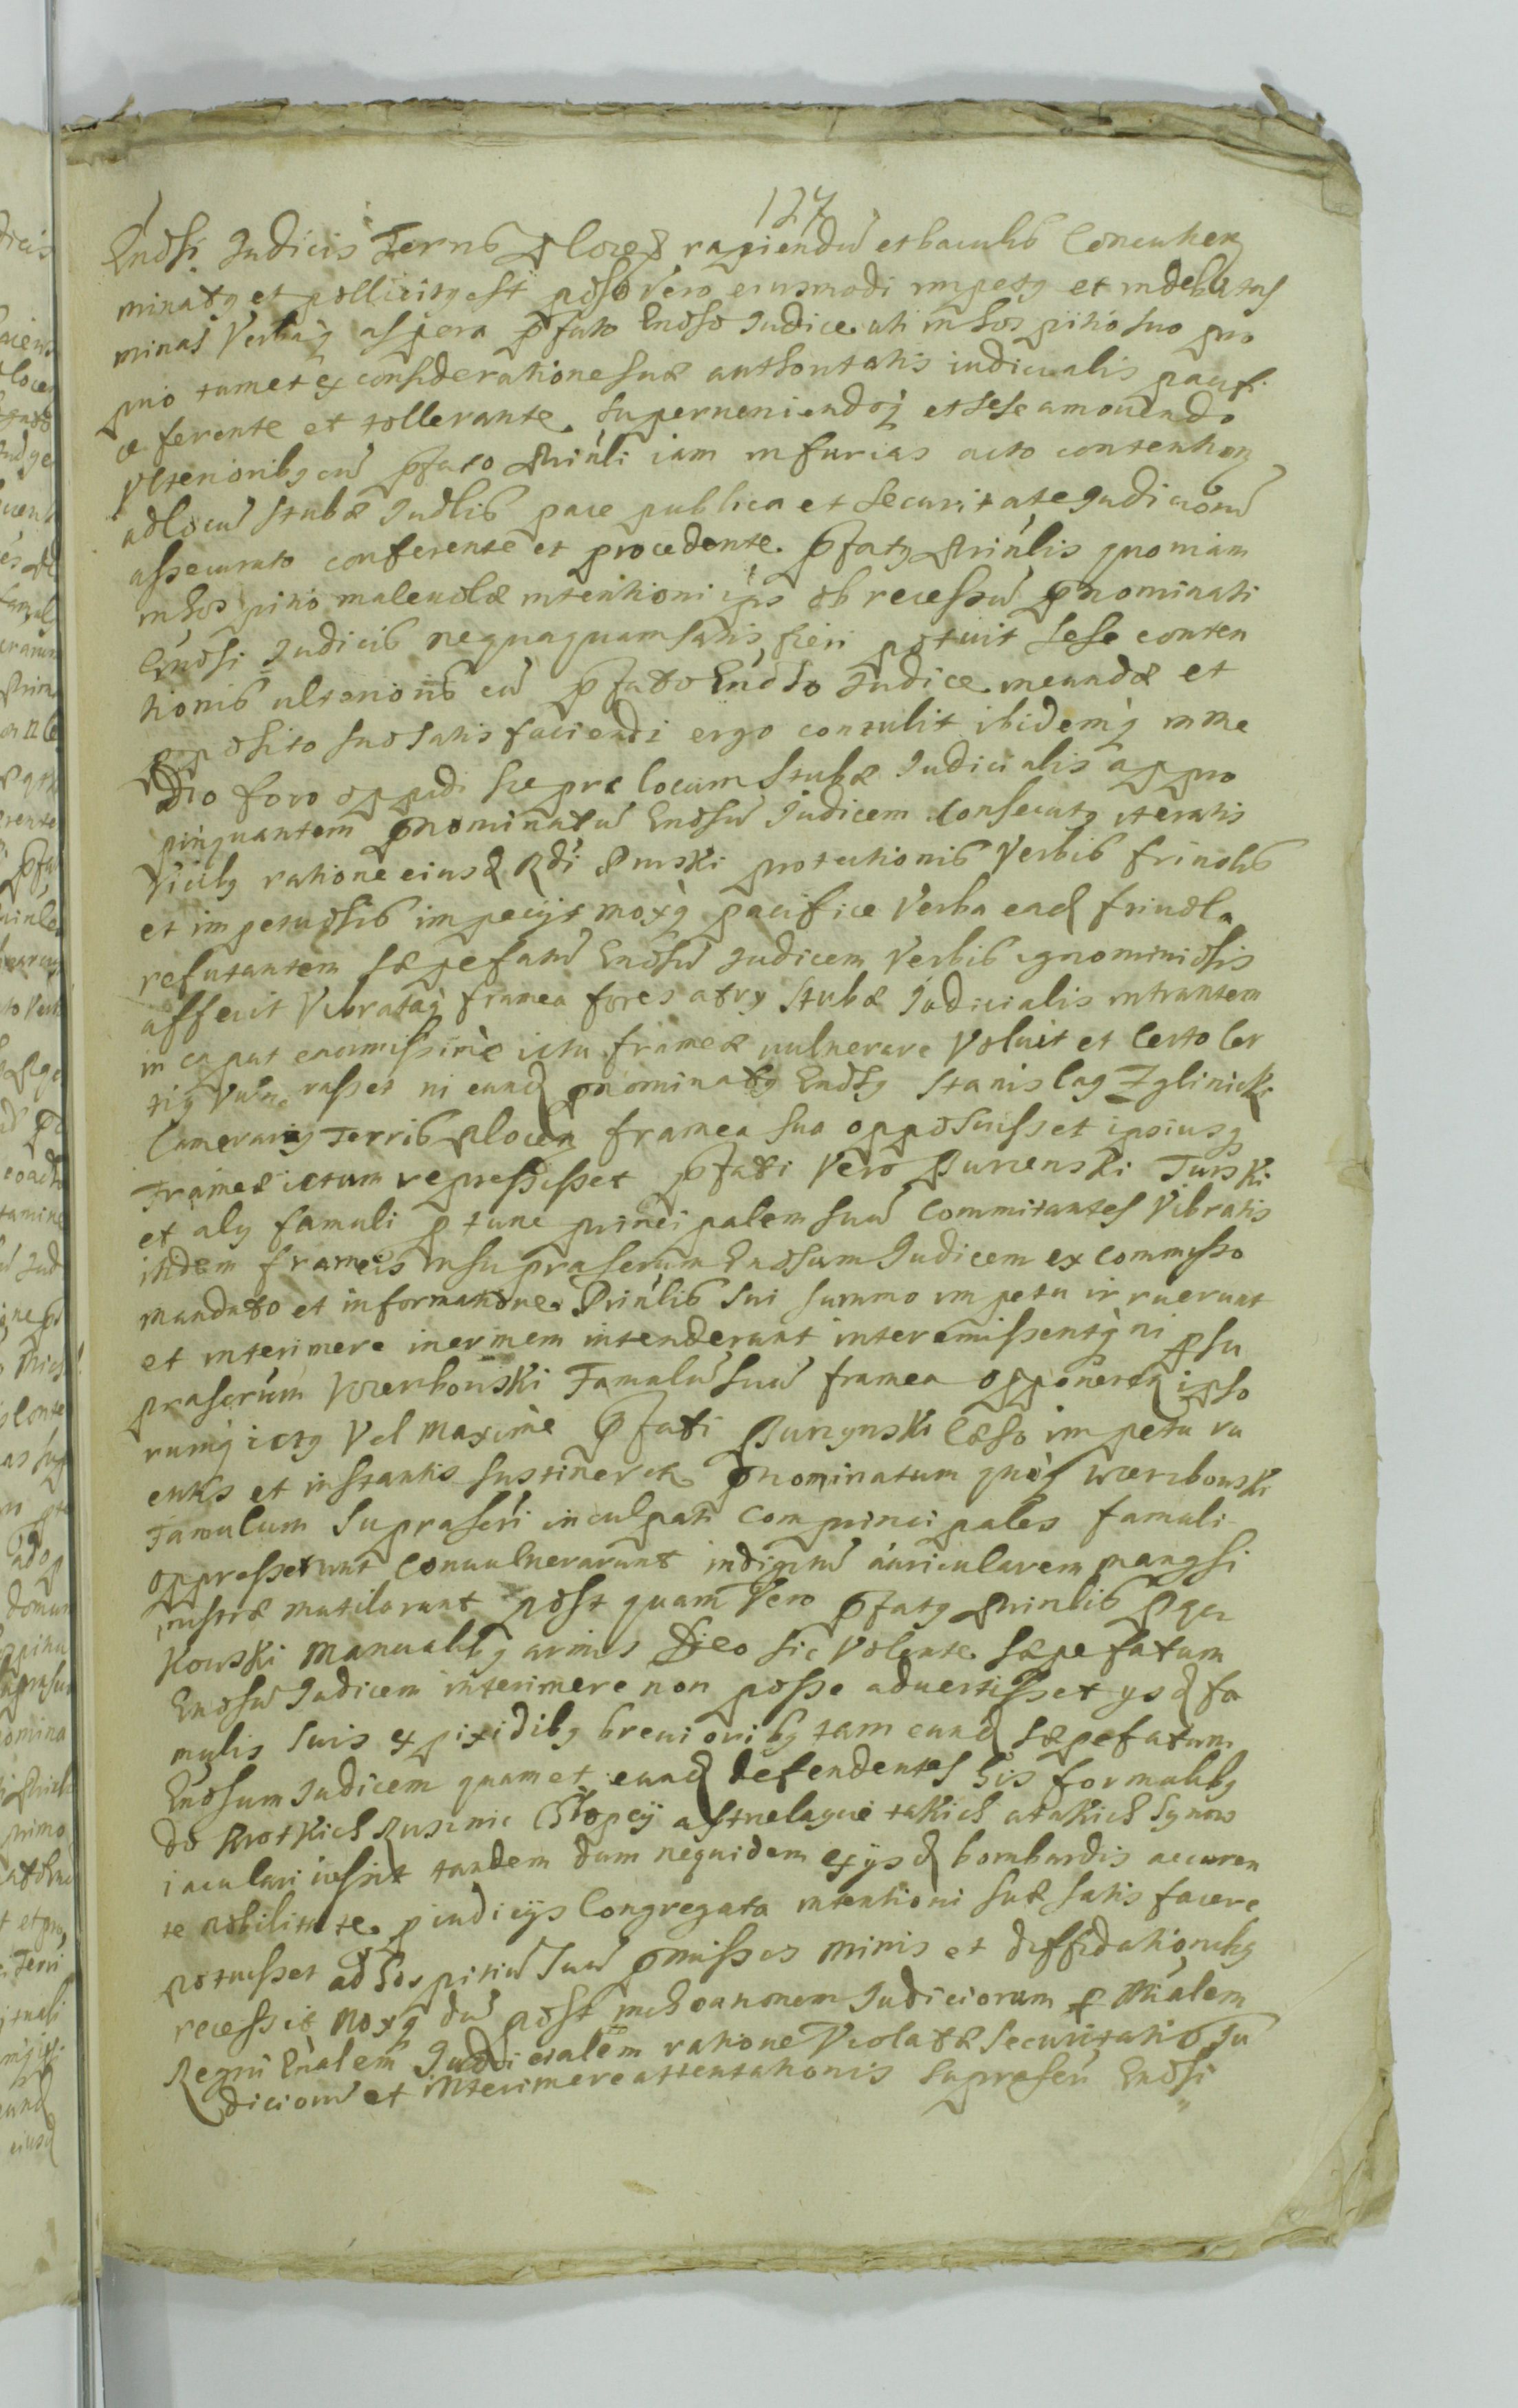 127
Gnosi Judicis Terris Plocen rapiendu et baculis Concuhen
minatq et pollicitq est post vero eiusmodi impetq et indebitas
minas Verbaq aspera pfato Gnoso Judice uti in hospitio suo pro
prio tum et ex consideratione suæ authoritatis iudicialis pacifi
ce ferente et tollerante. superveniendoq et sese amovendo
Ulterioribq cu pfato Prinli iam in furias acto contention
ad locu stubæ Judlis pace publica et securitate Judicioru
assecurato conferente et procedente. pfatq Prinlis quoniam
in hospitio malevolæ intentioni ips ob recessu pnominati
Gnosi Judicis nequaquam satis fieri potuit sese conten
tionis ulterioris cu pfato Gnoso Judice meundæ et
pposito suo satis faciendi ergo contulit ibidemq in me
dio foro oppidi Sieprc locum stubæ Judicialis appro
pinquantem pnominatu Gnosu Judicem consecutq iteratis
Vicibq ratione eiusd Rdi Pinski protectionis Verbis frinolis
et impetuosis impecijt moxq pacifice Verba ead friuola
refutantem sæpefatu Gnosu Judicem Verbis ignominiosis
affecit Vibrataq framea fores atry stubæ Judicialis intrantem
in caput enormissime ictu frameæ uulnerare Voluit et Certo cer
tiq Vulnerasset ni eund pnominatq Gnosq Stanislaq Zglinicki
Camerariq Terris Plocen framea sua opposuisset ipsiusq
Frameæ ictum repressisset pfati Vero Burzenski Turski
et aly famuli p tunc principalem suu Commitantes Vibratis
itidem frameis in suprascrium Gnosum Judicem ex commisso
mandato et informatione Prinlis sui summo impetu irruerunt
et interimere inermem intenderunt interemissentq ni p su
prascrium Wierzbowski Famulu suu framea opponeren ipso
rumq ictq Vel maxime pfati Burzynski Cæso impetu ru
entis et instantis sustineret pnominatum quoq Wierzbowski
Famulum suprascri inculpati Comprincipales famuli
oppresserunt Convulnerarunt indigitu auricularem manq si
nistræ mutilarunt post quam Vero pfatq Prinlis Pga
Kowski manualibq armis Deo sic Volente sæpefatum
Gnosu Judicem interimere non posse advertisset ysd fa
mulis suis ex pixidibq brevioribq tam eund sæpefatum
Gnosum Judicem quam et eund defendentes his formalibq
do Krotkich Rusznic Chłopcy a strzelaycie takich a takich synow
iaculari iussit tandem dum nequidem ex ysd bombardis accuren
te nobilitate p iudicijs Congregata intentioni suæ satis facere
potuisset ad hospitiu suu pmissis minis et diffidationibq
recessit moxq du post inchoationem Judiciorum p Mialem
Regni Gnalem Judicialem ratione Violatæ securitatis Ju
dicioru et interimere attentationis suprascri Gnosi